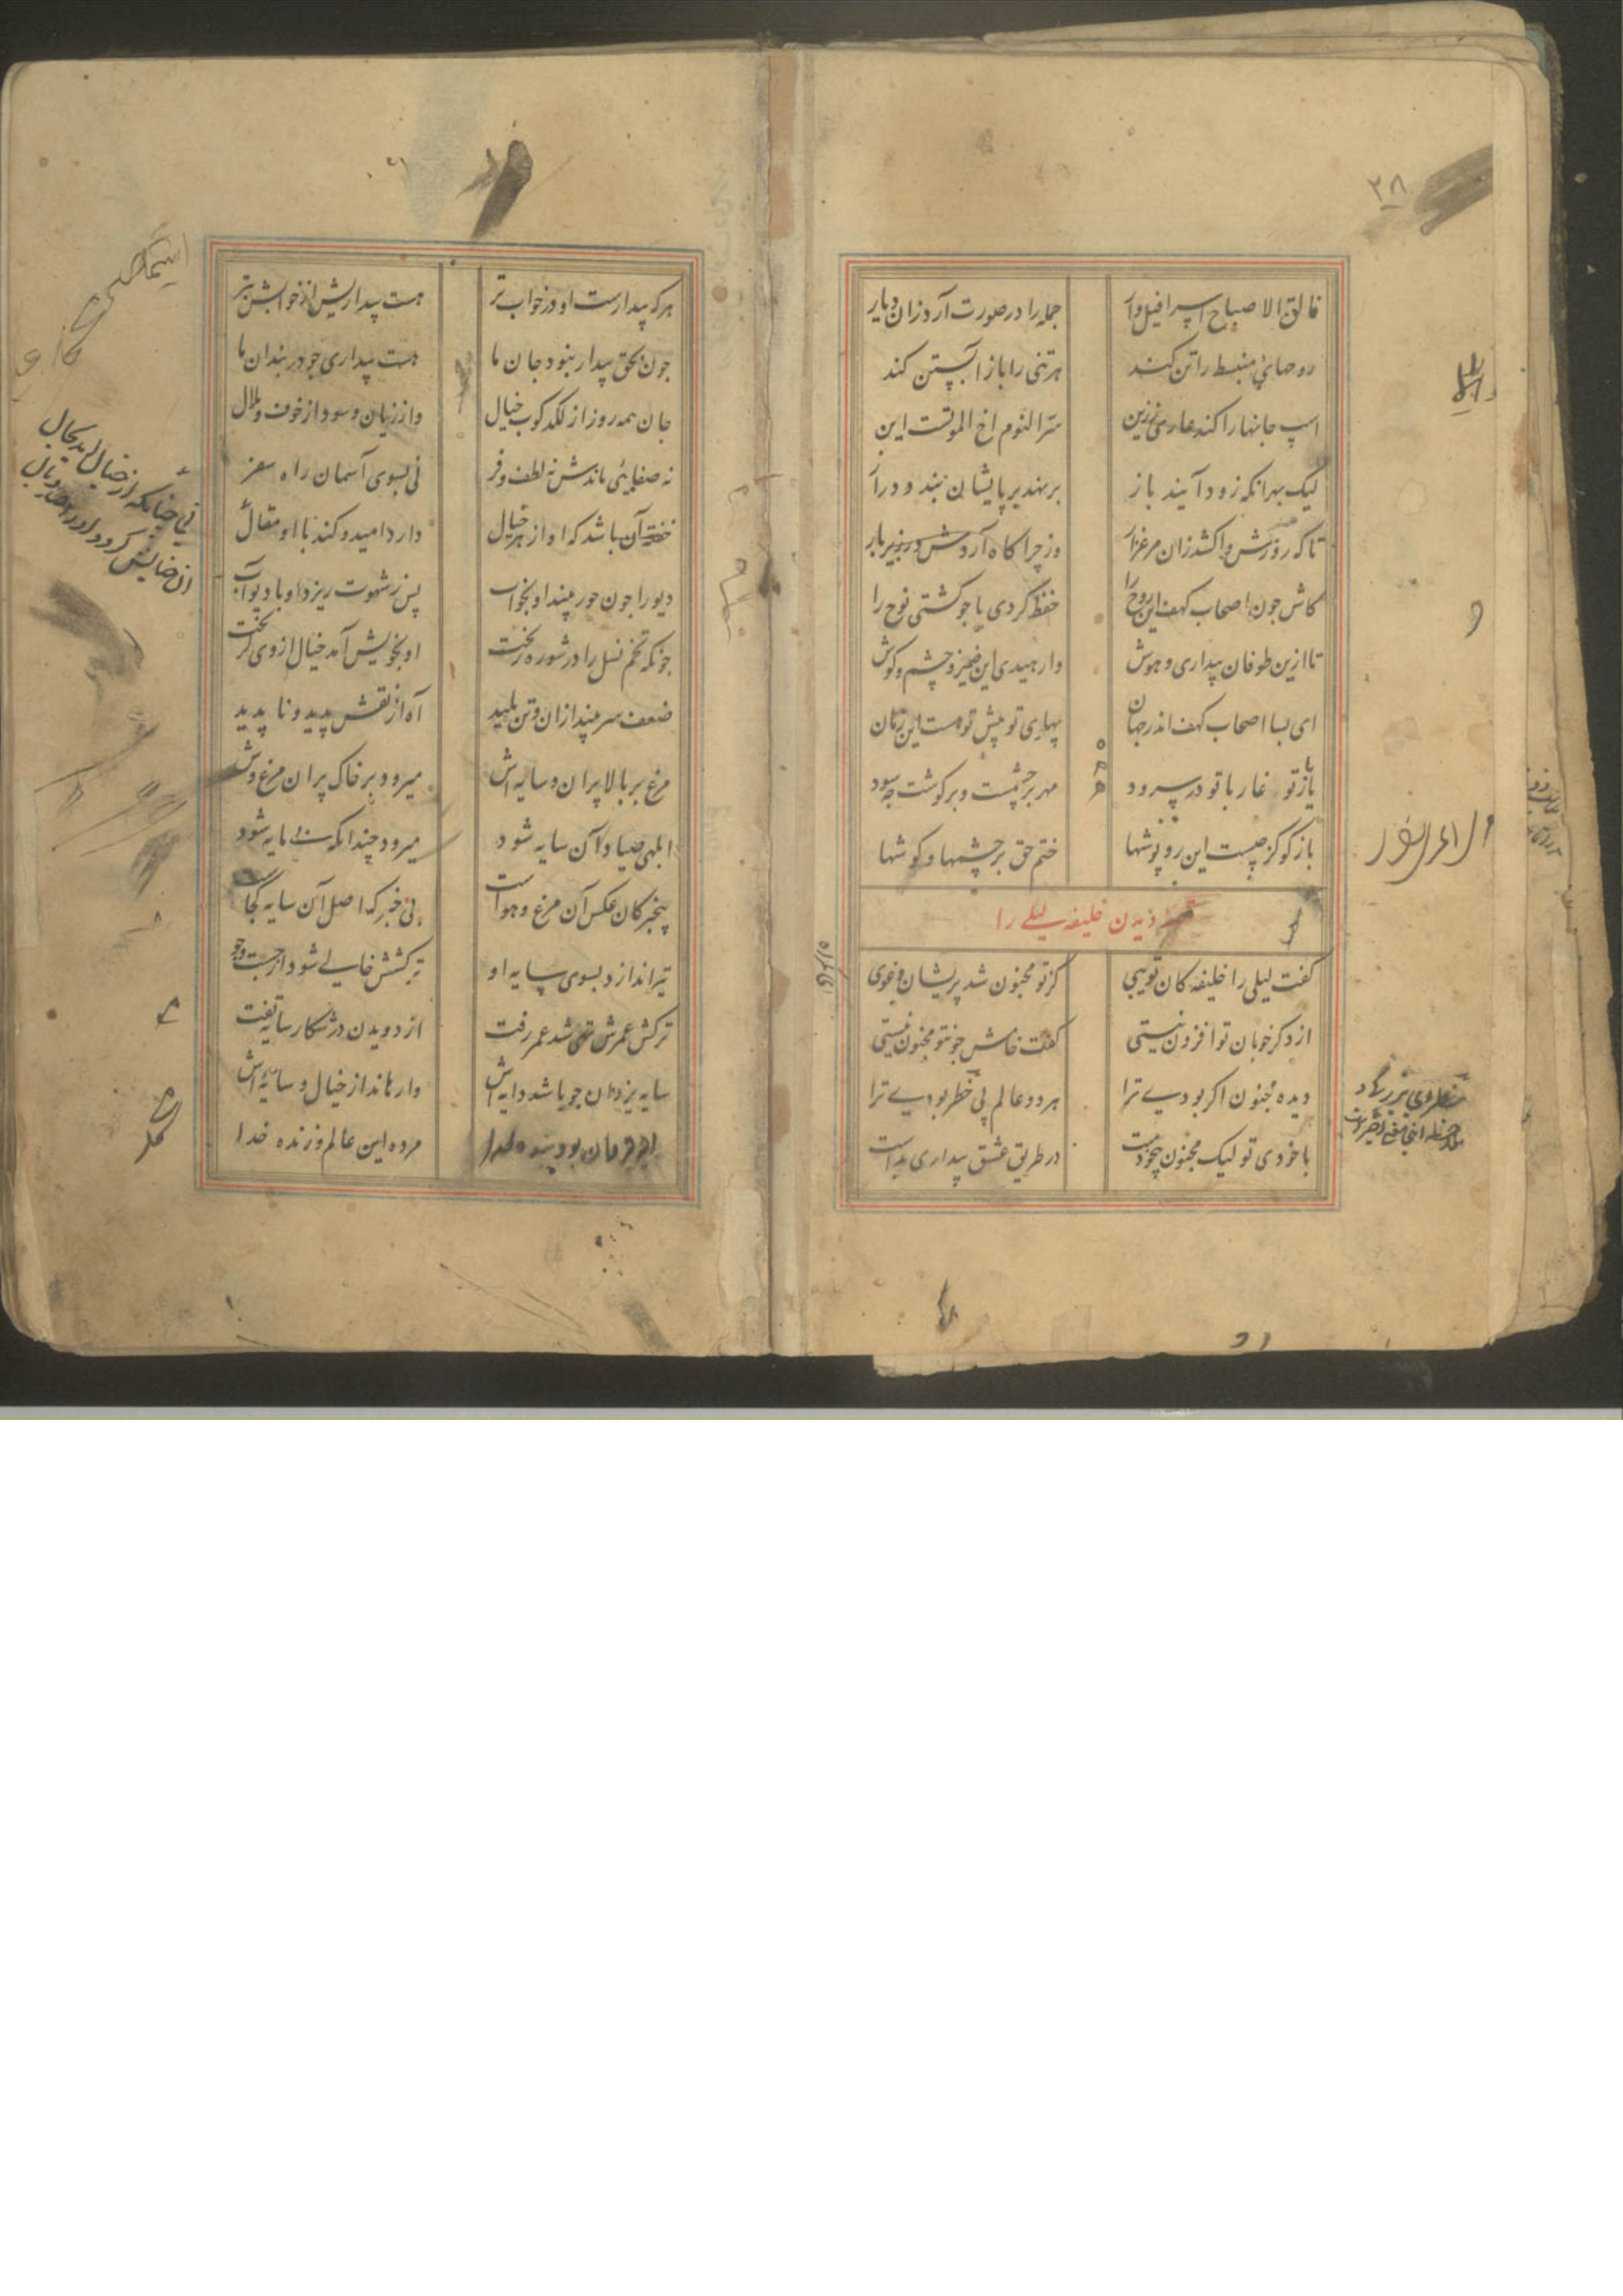 ۳۸
فالق الاصباح اسرافیل وار جمله را در صورت آرد زان دیار
روحهای منبسط را تن کند هر تنی را باز آبستن کند
اسپ جانها را کند عاری ز زین سرّ النوم اخ الموتست این
لیک بهر انکه زود آیند باز بر نهد بر پایشان بند دراز
تا که روزش واکشد زان مرغزار وز چراکاه آردش در زیر بار
کاش چون اصحاب کهف این روح را حفظ کردی یا چو کشتی نوح را
تا ازین طوفان بیداری و هوش وارهیدی این ضمیر و چشم و کوش
ای بسا اصحاب کهف اندر جهان پهلوی تو پیش تو هست این زمان
یار تو غار با تو در سرود مهر بر چشمست و بر کوشت چه سود
باز کو کز چیست این روپوشها ختم حق بر چشمها و کوشها
قصه دیدن خلیفه لیلی را
کفت لیلی را خلیفه کان تویی کز تو مجنون شد پریشان و غوی
از دکر خوبان تو افزون نیستی کفت خامش چو تو مجنون نیستی
دیده مجنون اکر بودی ترا هر دو عالم بی خطر بودی ترا
با خودی تو لیک مجنون بیخودست در طریق عشق بیداری بدست
هرکه بیدارست او در خواب تر هست بیداریش از خوابش بتر
چون بحق بیدار نبود جان ما هست بیداری چو در بندان ما
جان همه روز از لکدکوب خیال واز زیان و سود و از خوف زوال
نه صفایی ماندش نه لطف و فر نی بسوی آسمان راه سفر
خفته آن باشد که او از هر خیال دارد امید و کند با او مقال
دیو را چون حور بیند او بخواب پس ز شهوت ریزد او با دیو آب
چونکه تخم نسل را در شوره ریخت او بخویش آمد خیال از وی کریخت
ضعف سر بیند از ان و تن پلید آه از ان نقش پدید و ناپدید
مرغ بر بالا پران و سایه اش میرود بر خاک پران مرغ وش
ابلهی صیاد آن سایه شود میرود چندانکه بی مایه شود
بیخبر کان عکس آن مرغ هواست بی خبر که اصل آن سایه کجاست
تیر اندازد بسوی سایه او ترکشش خالی شود از جست و جو
ترکش عمرش تهی شد عمر رفت از دویدن در شکار سایه تفت
سایه یزدان چو باشد دایه اش وارهاند از خیال و سایه اش
سایه یزدان بود بنده خدا مرده این عالم و زنده خدا
نی چنانکه از خیال آید بحال
آن خیالش کردد او را صد وبال